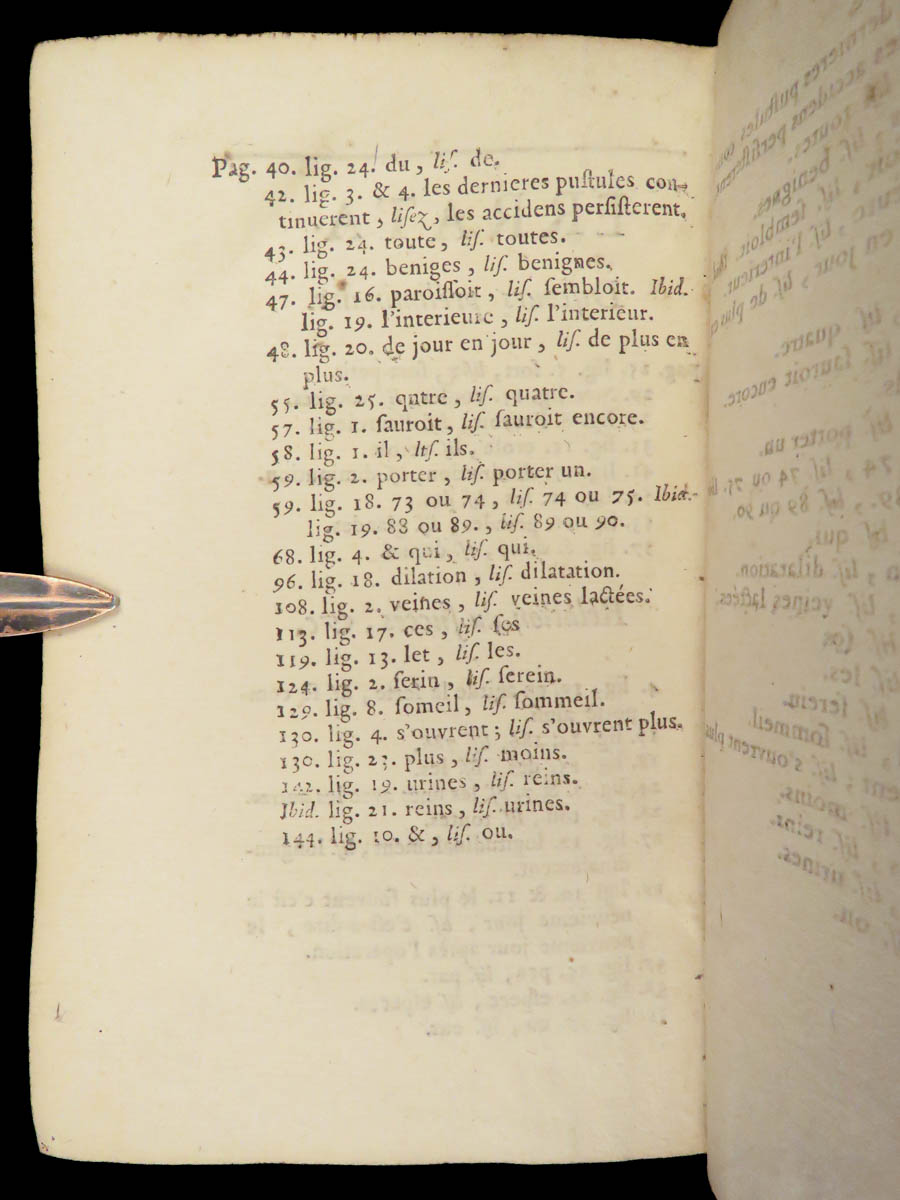 Pag. 40. lig. 24. du, liſ. de.
42. lig. 3. & 4. les dernieres puſtules con-
tinuerent, liſez, les accidens perſiſterent.
43. lig. 24. toute, liſ. toutes.
44. lig. 24. beniges, liſ. benignes.
47. lig. 16. paroiſſoit, liſ. ſembloit. Ibid.
lig. 19. l'interieure, liſ. l'interieur.
48. lig. 20. de jour en jour, liſ. de plus en
plus.
55. lig. 25. qatre, liſ. quatre.
57. lig. 1. ſauroit, liſ. ſauroit encore.
58. lig. 1. il, liſ. ils.
59. lig. 2. porter, liſ. porter un.
59. lig. 18. 73 ou 74, liſ. 74 ou 75. Ibid.
lig. 19. 88 ou 89., liſ. 89 ou 90.
68. lig. 4. & qui, liſ. qui.
96. lig. 18. dilation, liſ. dilatation.
108. lig. 2. veines, liſ. veines lactées.
113. lig. 17. ces, liſ. ſes
119. lig. 13. let, liſ. les.
124. lig. 2. ſerin, liſ. ſerein.
129. lig. 8. ſomeil, liſ. ſommeil.
130. lig. 4. s'ouvrent; liſ. s'ouvrent plus.
130. lig. 23. plus, liſ. moins.
142. lig. 19. urines, liſ. reins.
Ibid. lig. 21. reins, liſ. urines.
144. lig. 10. &, liſ. ou.